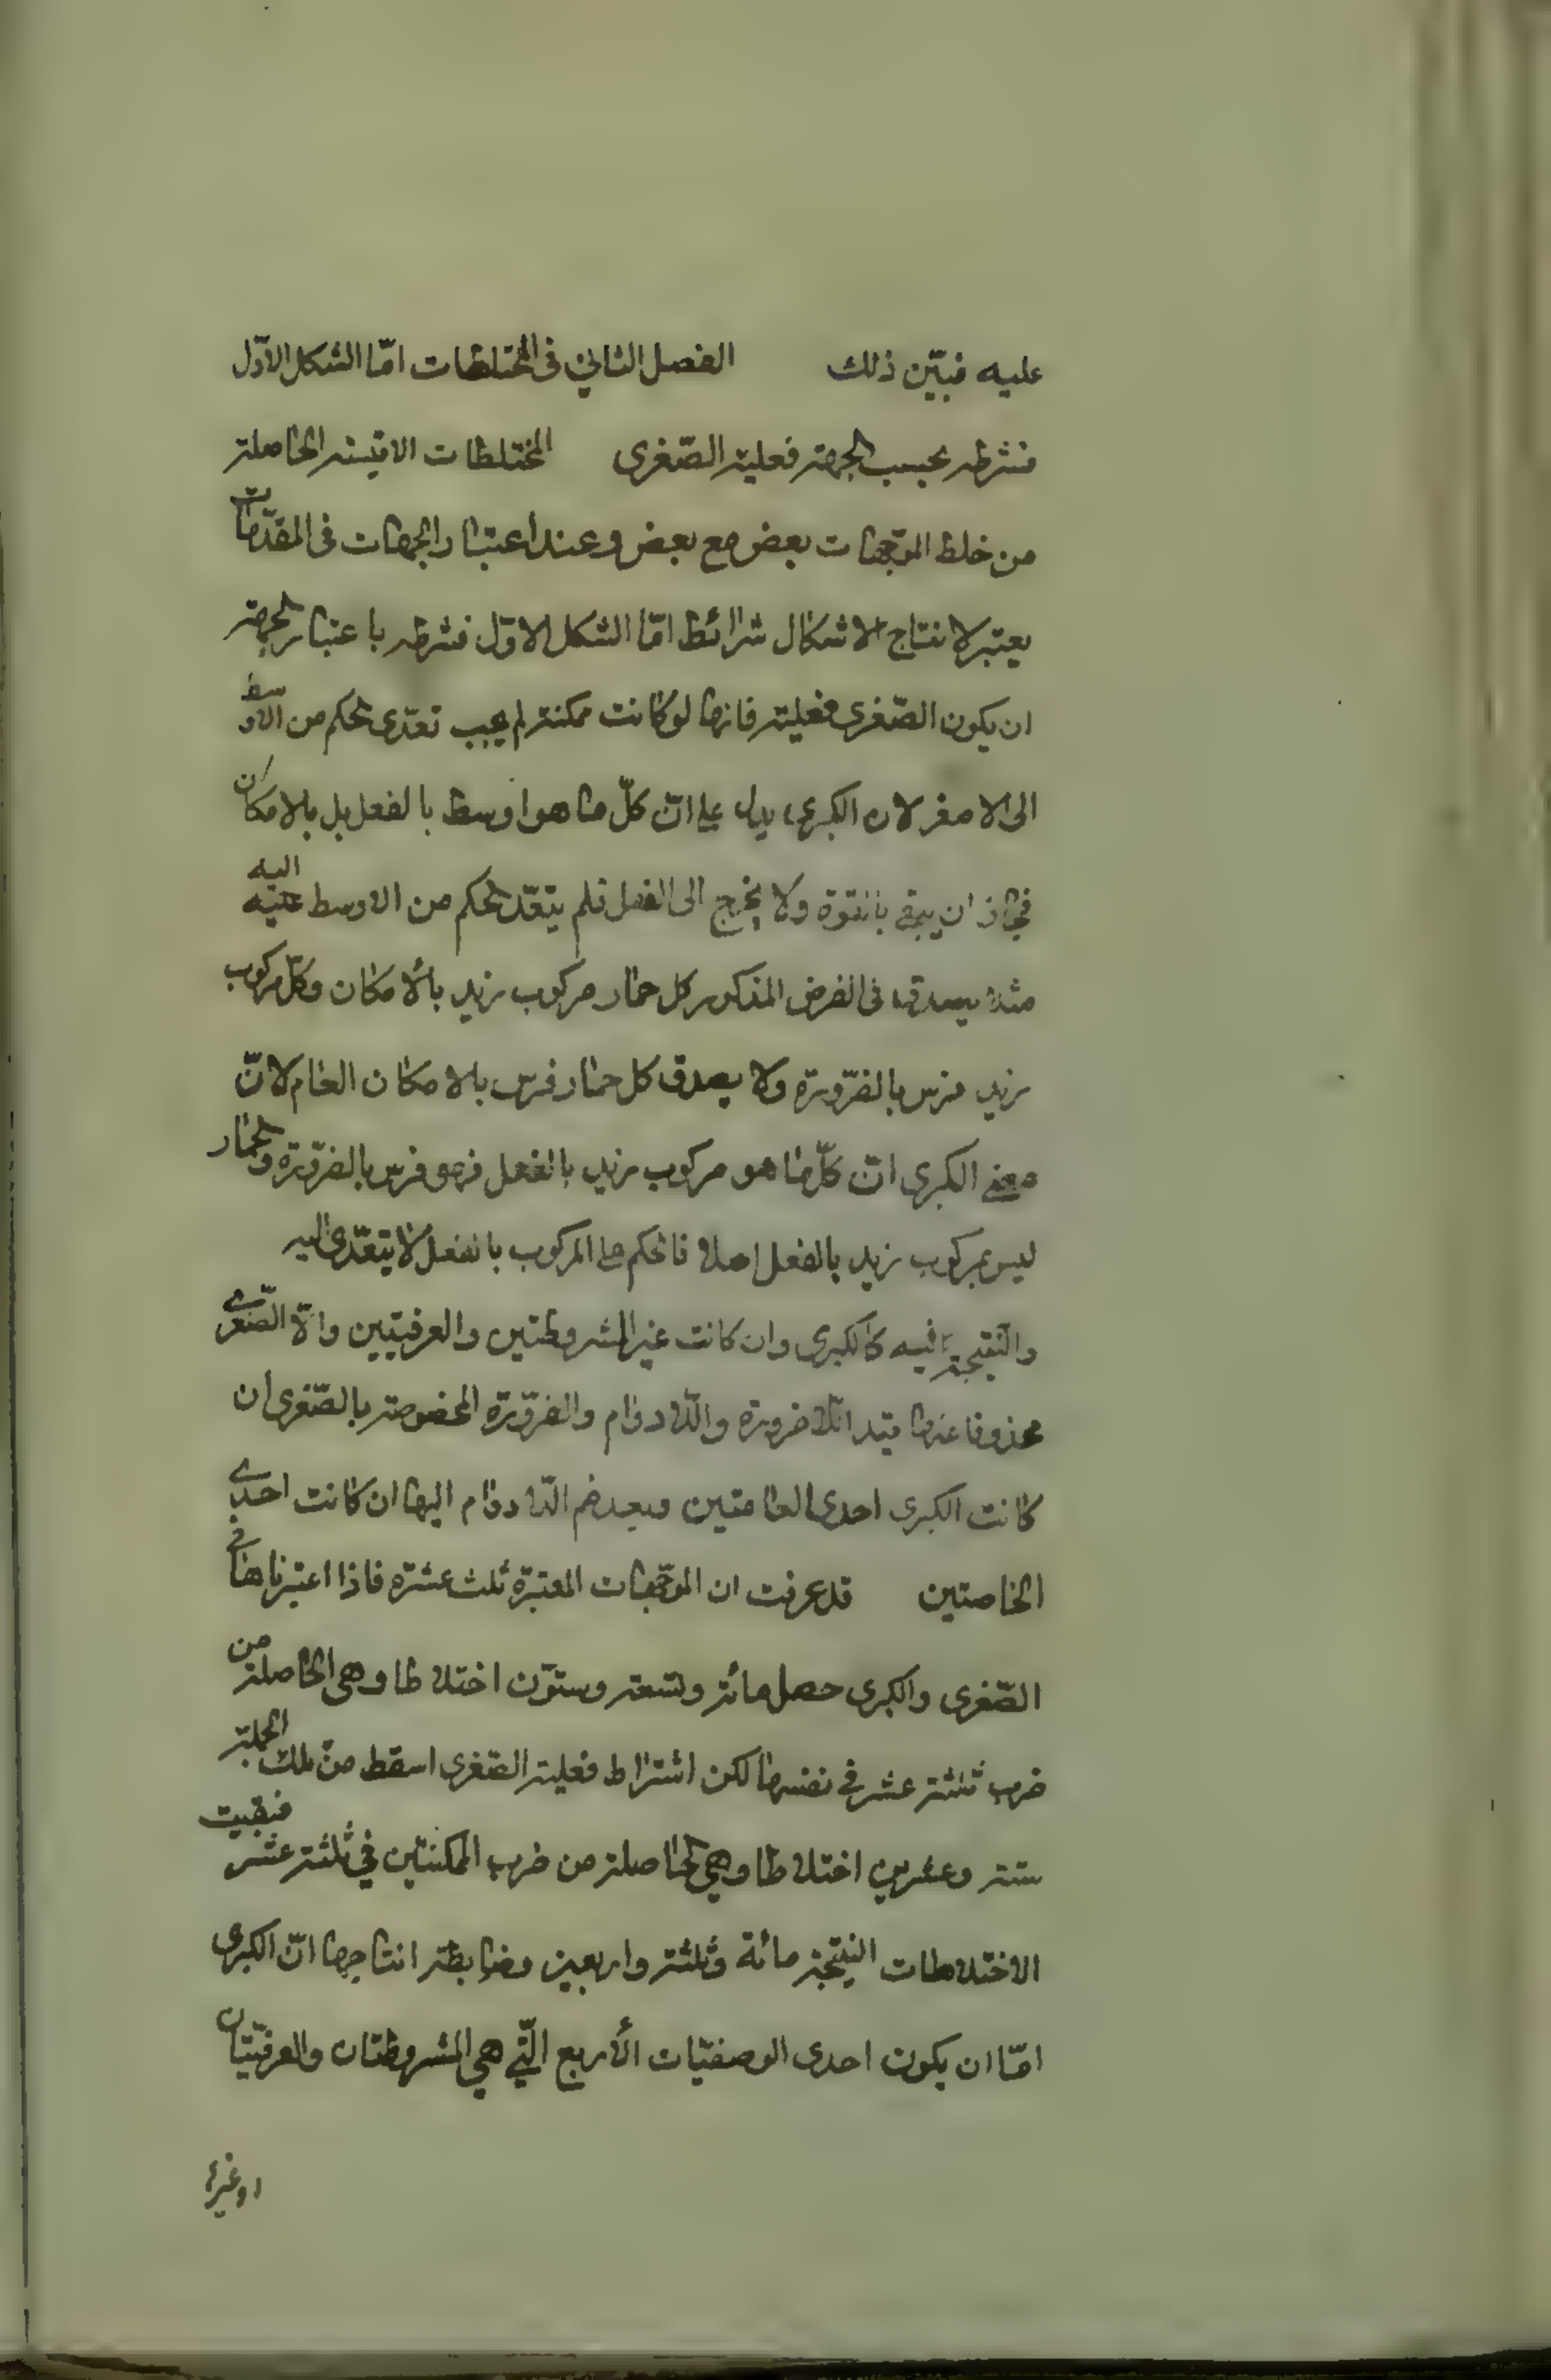 عليه فبيّن ذلك الفصل الثاني في المختلطات امّا الشكل الاوّل
فشرطه بحسب الجهة فعلية الصّغرى المختلطات الاقيسة الحاصلة
من خلط الموجّهات بعض مع بعض وعند اعتبار الجهات في المقدّمات
يعتبر لانتاج الاشكال شرائط امّا الشكل الاوّل فشرطه باعتبار الجهة
ان يكون الصّغرى فعلية فانها لو كانت ممكنة لم يجب تعدّى الحكم من الاوسط
الى الاصغر لان الكبرى يدل على انّ كلّ ما هو اوسط بالفعل بل بالامكان
فجاز ان يبقى بالقوة ولا يخرج الى الفعل فلم يتعدّ الحكم من الاوسط عليه اليه
مثلا يصدق في الفرض المذكور كل حمار مركوب زيد بالامكان وكلّ مركوب
زيد فرس بالضرّورة ولا يصدق كل حمار فرس بالامكان العام لانّ
معنى الكبرى انّ كلّ ما هو مركوب زيد بالفعل فهو فرس بالضرّورة والحمار
ليس بمركوب زيد بالفعل اصلا فالحكم على المركوب بالفعل لا يتعدّى اليه
والنتيجة فيه كالكبرى وان كانت غير المشروطتين والعرفيتين والّا الصّغرى
محذوفا عنها قيد اللا ضرورة واللا دوام والضرّورة المخصوصة بالصّغرى ان
كانت الكبرى احدى العامتين وبعد ضم اللا دوام اليها ان كانت احدى
الخاصتين قد عرفت ان الموجّهات المعتبرة ثلث عشرة فاذا اعتبرناها في
الصّغرى والكبرى حصل مائة وتسعة وستّون اختلاطا وهى الحاصلة من
ضرب ثلثة عشر في نفسها لكن اشتراط فعلية الصّغرى اسقط من تلك الجملة
ستة وعشرين اختلاطا وهي الحاصلة من ضرب الممكنتين في ثلثة عشر فبقيت
الاختلاطات النتيجة مائة وثلثة واربعين وضابطة انتاجها انّ الكبرى
امّا ان يكون احدى الوصفيّات الأربع الّتي هي المشروطتان والعرفيّتان
او غيرها